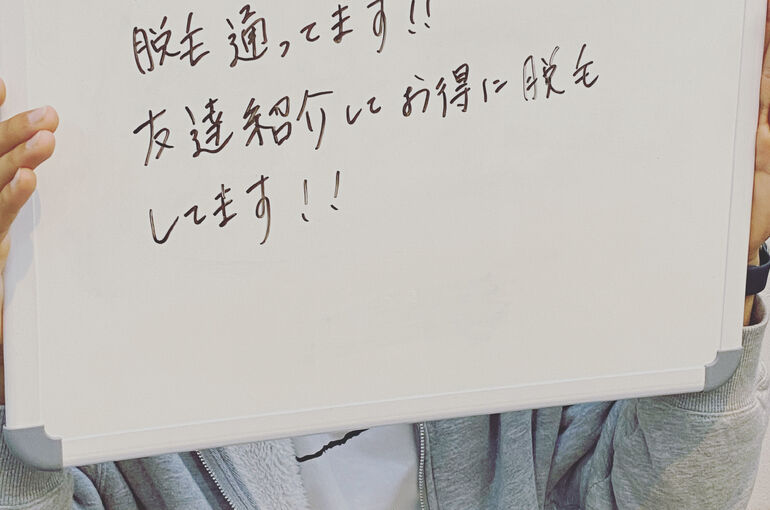 脱毛通ってます!!
友達紹介してお得に脱毛
してます!!